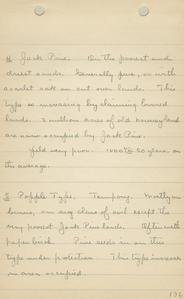 4 Jack Pine. On the poorest and
driest sands. Generally pure, or with
scarlet oak on cut over lands. This
type is increasing by claiming burned
lands. 2 million acres of old Norway land
are now occupied by Jack Pine.
Yield very poor. 1000 to 50 years, on
the average.
5 Popple Type. Temporary. Mostly on
burns, on any class of soil except the
very poorest Jack Pine lands. Often with
paper birch. Pine seeds in on this
type under protection. This type increases
in area occupied.